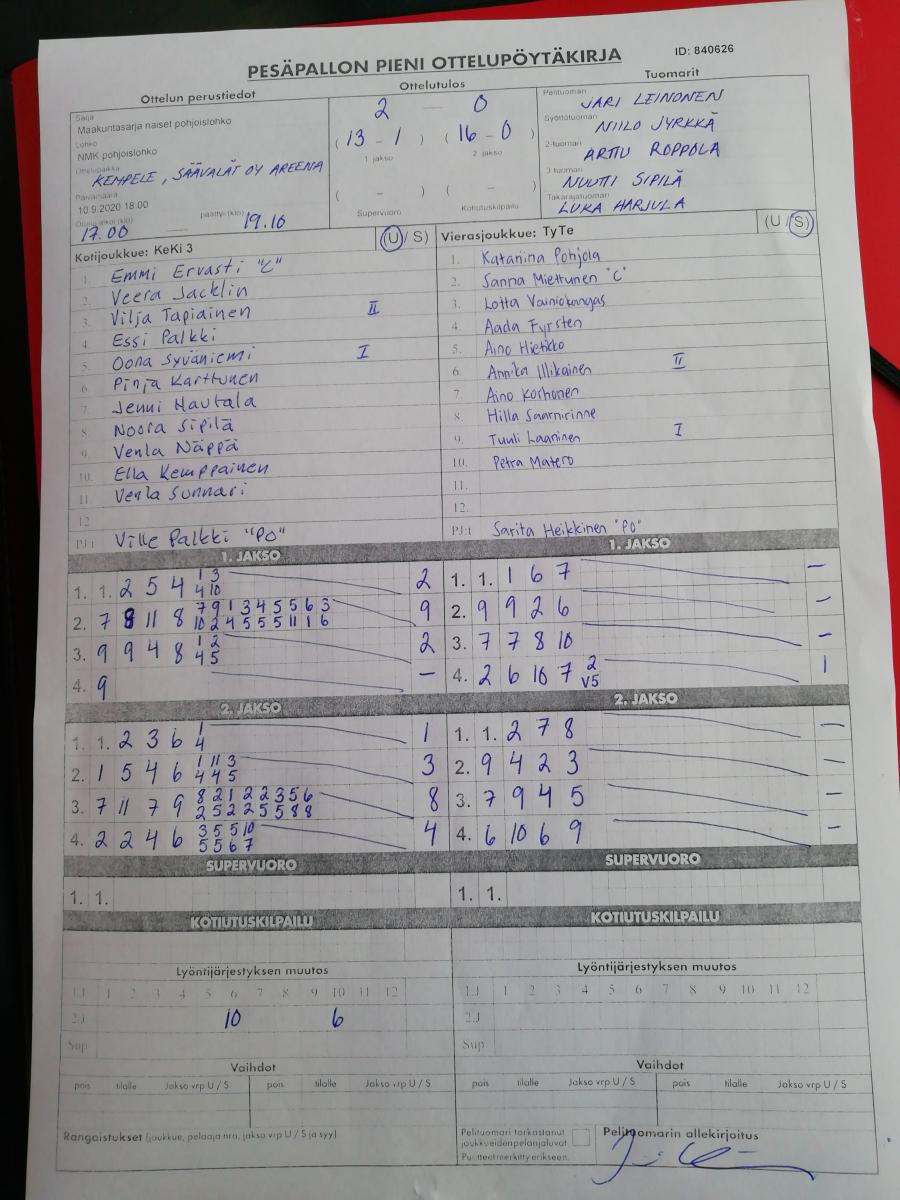 PESÄPALLON PIENI OTTELUPÖYTÄKIRJA
ID: 840626
Ottelun perustiedot
Sarja
Maakuntasarja naiset pohjoislohko
Lohko
NMK pohjoislohko
Ottelupaikka
KEMPELE, SÄÄVÄLÄT OY AREENA
Päivämäärä
10.9.2020 18.00
Ottelu alkoi (klo) päättyi (klo)
17.00 19.10
Ottelutulos
2 — 0
(13 - 1) (16 - 0)
1 jakso 2 jakso
( - ) ( - )
Supervuoro Kotiutuskilpailu
Tuomarit
Pelituomari
JARI LEINONEN
Syöttötuomari
NIILO JYRKKÄ
2-tuomari
ARTTU ROPPOLA
3-tuomari
NUUTTI SIPILÄ
Takarajatuomari
LUKA HARJULA
Kotijoukkue: KeKi 3 (U / S)
1. Emmi Ervasti "C"
2. Veera Jacklin
3. Vilja Tapiainen II
4. Essi Palkki
5. Oona Syväniemi I
6. Pinja Karttunen
7. Jenni Hautala
8. Noora Sipilä
9. Venla Näppä
10. Ella Kemppainen
11. Venla Sunnari
12
PJ:t Ville Palkki "PO"
Vierasjoukkue: TyTe (U / S)
1. Katariina Pohjola
2. Sanna Miettunen "C"
3. Lotta Vainiokangas
4. Aada Fyrsten
5. Aino Hietikko
6. Annika Illikainen II
7. Aino Korhonen
8. Hilla Saarnirinne
9. Tuuli Laaninen I
10. Petra Matero
11.
12.
PJ:t Sarita Heikkinen "PO"
1. JAKSO
1. 1. 2 5 4 1 3 2
4 10
2. 7 8 11 8 7 9 1 3 4 5 5 6 3 9
10 2 4 5 5 5 11 1 6
3. 9 9 4 8 1 2 2
4 5
4. 9 –
1. JAKSO
1. 1. 1 6 7 –
2. 9 9 2 6 –
3. 7 7 8 10 –
4. 2 6 10 7 2 1
V5
2. JAKSO
1. 1. 2 3 6 1 1
4
2. 1 5 4 6 1 11 3 3
4 4 5
3. 7 11 7 9 8 2 1 2 2 3 5 6 8
2 5 2 2 5 5 8 8
4. 2 2 4 6 3 5 5 10 4
5 5 6 7
2. JAKSO
1. 1. 2 7 8 –
2. 9 4 2 3 –
3. 7 9 4 5 –
4. 6 10 6 9 –
SUPERVUORO
1. 1.
SUPERVUORO
1. 1.
KOTIUTUSKILPAILU
KOTIUTUSKILPAILU
Lyöntijärjestyksen muutos
1.J 1 2 3 4 5 6 7 8 9 10 11 12
2.J 10 6
Sup
Lyöntijärjestyksen muutos
1.J 1 2 3 4 5 6 7 8 9 10 11 12
2.J
Sup
Vaihdot
pois tilalle Jakso vrp U / S pois tilalle Jakso vrp U / S
Vaihdot
pois tilalle Jakso vrp U / S pois tilalle Jakso vrp U / S
Rangaistukset (joukkue, pelaaja nro, jakso vrp U / S ja syy)
Pelituomari tarkastanut
joukkueidenpelaajaluvat
Puutteet merkitty erikseen.
Pelituomarin allekirjoitus